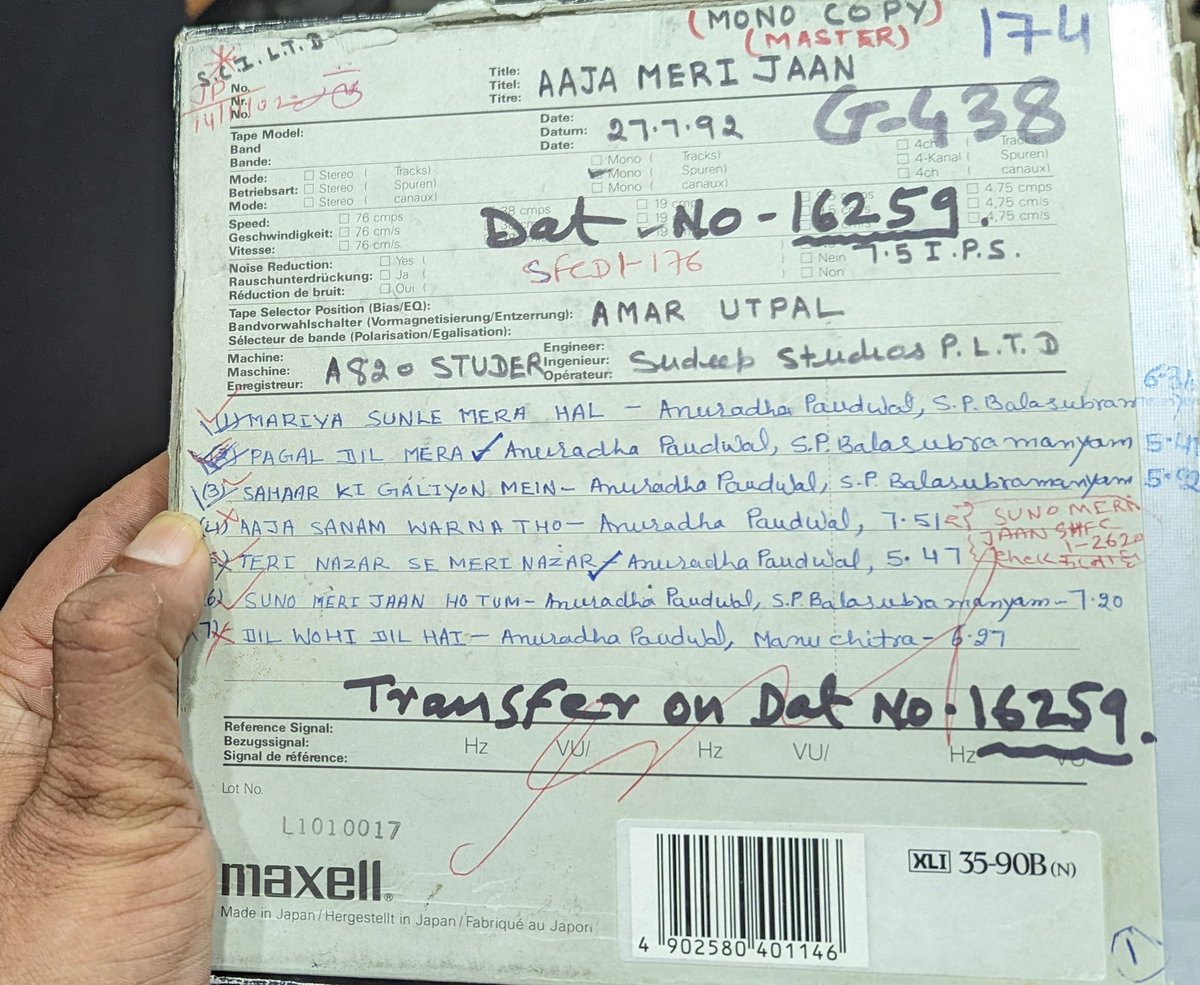 (MONO COPY)
(MASTER)
174
S.C.I. L.T.D
JP
No.
Nr.
No.
Title:
Titel:
Titre:
AAJA MERI JAAN
G-438
Tape Model:
Band
Bande:
Date:
Datum:
Date:
27.7.92
Mode: Stereo ( Tracks) Mono ( Tracks) 4ch Tracks)
Betriebsart: Stereo ( Spuren) Mono ( Spuren) 4-Kanal ( Spuren)
Mode: Stereo ( canaux) Mono ( canaux) 4ch canaux)
Speed: 76 cmps 38 cmps 19 cmps 4,75 cmps
Geschwindigkeit: 76 cm/s 19 4,75 cm/s
Vitesse: 76 cm/s 19 4,75 cm/s
Dat No - 16259.
7.5 I.P.S.
Noise Reduction: Yes (
Rauschunterdrückung: Ja ( Nein
Réduction de bruit: Oui ( Non
SFCD1-176
Tape Selector Position (Bias/EQ):
Bandvorwahlschalter (Vormagnetisierung/Entzerrung):
Sélecteur de bande (Polarisation/Egalisation):
AMAR UTPAL
Machine:
Maschine:
Enregistreur:
A820 STUDER
Engineer:
Ingenieur:
Opérateur:
Sudeep Studios P.L.T.D
(1) MARIYA SUNLE MERA HAL - Anuradha Paudwal, S.P. Balasubram 6.31
(2) PAGAL DIL MERA Anuradha Paudwal, S.P. Balasubramanyam 5.41
(3) SAHAAR KI GALIYON MEIN - Anuradha Paudwal, S.P Balasubramanyam 5.42
(4) AAJA SANAM WARNA THO - Anuradha Paudwal, 7.51
SUNO MERA
JAAN SHFC
1-2620
chek
(5) TERI NAZAR SE MERI NAZAR Anuradha Paudwal, 5.47
(6) SUNO MERI JAAN HO TUM - Anuradha Paudwal, S.P. Balasubramanyam - 7.20
(7) DIL WOHI DIL HAI - Anuradha Paudwal, Manuchitra - 6.27
Transfer on Dat No. 16259.
Reference Signal:
Bezugssignal:
Signal de référence:
Hz VU/ Hz VU/ Hz VU
Lot No.
L1010017
maxell®
Made in Japan / Hergestellt in Japan / Fabriqué au Japon
4 902580 401146
XLI 35-90B (N)
1